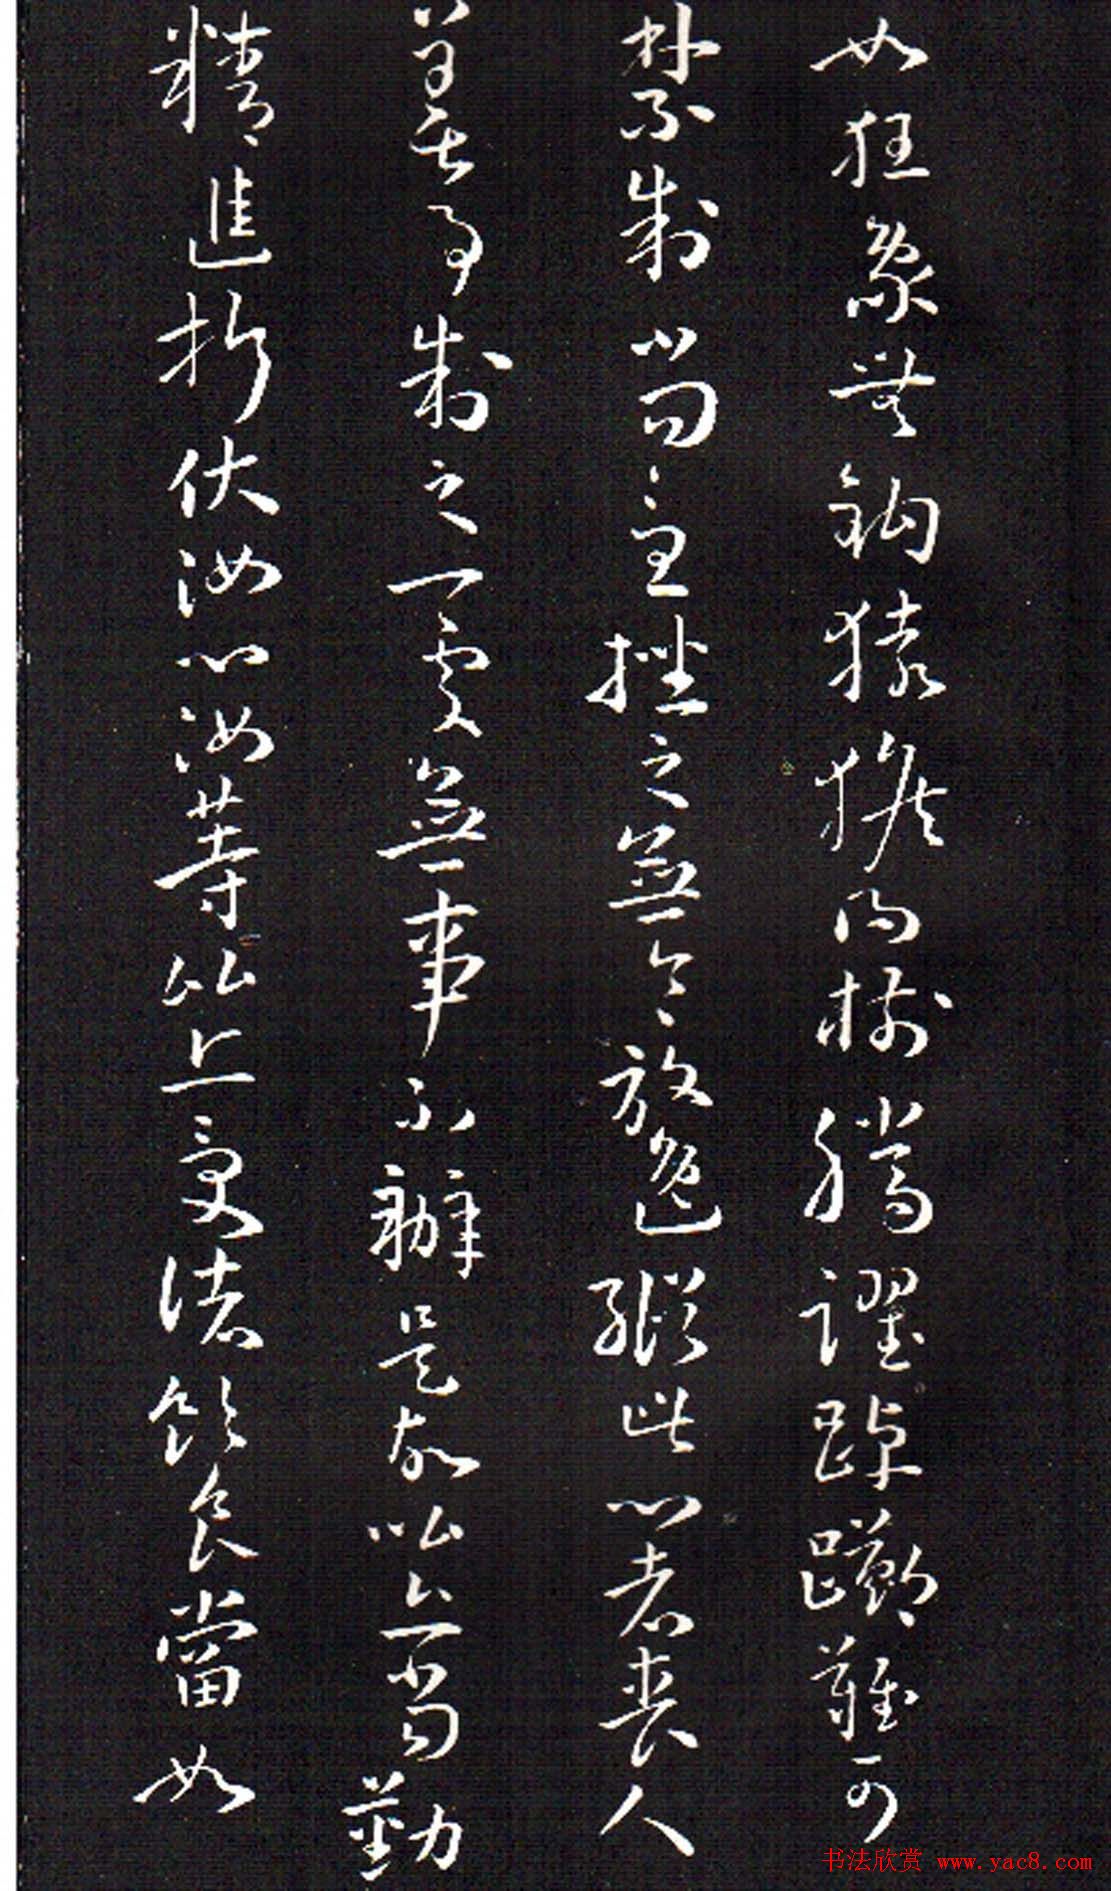 如狂象無鉤猿猴得樹騰躍踔躑難可
禁制當急挫之無令放逸縱此心者喪人
善事制之一處無事不辦是故比丘當勤
精進折伏汝心汝等比丘受諸飲食當如
书法欣赏 www.yac8.com